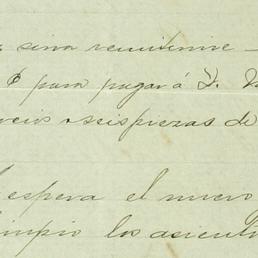 sirva remitirme
para pagar á D.
seis piezas de
espera el nuevo
limpio los asient